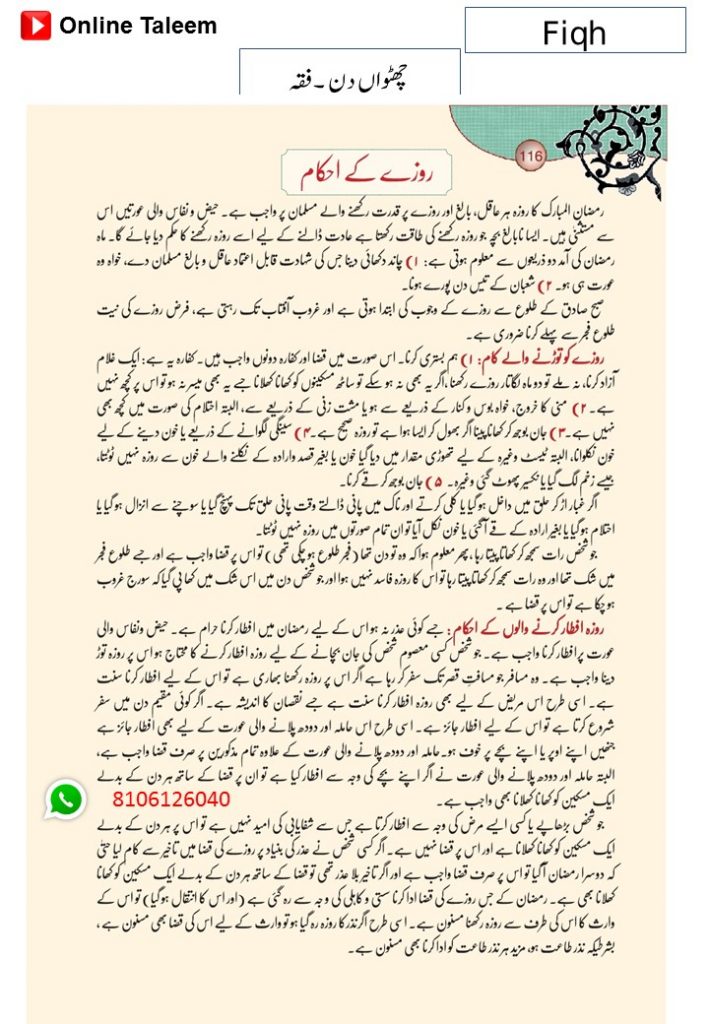 Online Taleem
Fiqh
چھٹواں دن ۔ فقہ
116
روزے کے احکام
رمضان المبارک کا روزہ ہر عاقل، بالغ اور روزے پر قدرت رکھنے والے مسلمان پر واجب ہے۔ حیض و نفاس والی عورتیں اس
سے مستثنیٰ ہیں۔ ایسا نابالغ بچہ جو روزہ رکھنے کی طاقت رکھتا ہے عادت ڈالنے کے لیے اسے روزہ رکھنے کا حکم دیا جائے گا۔ ماہ
رمضان کی آمد دو ذریعوں سے معلوم ہوتی ہے: ۱) چاند دکھائی دینا جس کی شہادت قابل اعتماد عاقل و بالغ مسلمان دے، خواہ وہ
عورت ہی ہو۔ ۲) شعبان کے تیس دن پورے ہونا۔
صبح صادق کے طلوع سے روزے کے وجوب کی ابتدا ہوتی ہے اور غروب آفتاب تک رہتی ہے، فرض روزے کی نیت
طلوع فجر سے پہلے کرنا ضروری ہے۔
روزے کو توڑنے والے کام: ۱) ہم بستری کرنا۔ اس صورت میں قضا اور کفارہ دونوں واجب ہیں۔ کفارہ یہ ہے: ایک غلام
آزاد کرنا، نہ ملے تو دو ماہ لگاتار روزے رکھنا، اگر یہ بھی نہ ہو سکے تو ساٹھ مسکینوں کو کھانا کھلانا جسے یہ بھی میسر نہ ہو تو اس پر کچھ نہیں
ہے۔ ۲) منی کا خروج، خواہ بوس و کنار کے ذریعے سے ہو یا مشت زنی کے ذریعے سے، البتہ احتلام کی صورت میں کچھ بھی
نہیں ہے۔ ۳) جان بوجھ کر کھانا پینا اگر بھول کر ایسا ہوا ہے تو روزہ صحیح ہے۔ ۴) سینگی لگوانے کے ذریعے یا خون دینے کے لیے
خون نکلوانا، البتہ ٹیسٹ وغیرہ کے لیے تھوڑی مقدار میں دیا گیا خون یا بغیر قصد وارادہ کے نکلنے والے خون سے روزہ نہیں ٹوٹتا،
جیسے زخم لگ گیا یا نکسیر پھوٹ گئی وغیرہ۔ ۵) جان بوجھ کر قے کرنا۔
اگر غبار اڑ کر حلق میں داخل ہو گیا یا کلی کرتے اور ناک میں پانی ڈالتے وقت پانی حلق تک پہنچ گیا یا سوچنے سے انزال ہو گیا یا
احتلام ہو گیا یا بغیر ارادہ کے قے آ گئی یا خون نکل آیا تو ان تمام صورتوں میں روزہ نہیں ٹوٹتا۔
جو شخص رات سمجھ کر کھاتا پیتا رہا، پھر معلوم ہوا کہ وہ تو دن تھا (فجر طلوع ہو چکی تھی) تو اس پر قضا واجب ہے اور جسے طلوع فجر
میں شک تھا اور وہ رات سمجھ کر کھاتا پیتا رہا تو اس کا روزہ فاسد نہیں ہوا اور جو شخص دن میں اس شک میں کھا پی گیا کہ سورج غروب
ہو چکا ہے تو اس پر قضا ہے۔
روزہ افطار کرنے والوں کے احکام: جسے کوئی عذر نہ ہو اس کے لیے رمضان میں افطار کرنا حرام ہے۔ حیض ونفاس والی
عورت پر افطار کرنا واجب ہے۔ جو شخص کسی معصوم شخص کی جان بچانے کے لیے روزہ افطار کرنے کا محتاج ہو اس پر روزہ توڑ
دینا واجب ہے۔ وہ مسافر جو مسافتِ قصر تک سفر کر رہا ہے اگر اس پر روزہ رکھنا بھاری ہے تو اس کے لیے افطار کرنا سنت
ہے۔ اسی طرح اس مریض کے لیے بھی روزہ افطار کرنا سنت ہے جسے نقصان کا اندیشہ ہے۔ اگر کوئی مقیم دن میں سفر
شروع کرتا ہے تو اس کے لیے افطار جائز ہے۔ اسی طرح اس حاملہ اور دودھ پلانے والی عورت کے لیے بھی افطار جائز ہے
جنھیں اپنے اوپر یا اپنے بچے پر خوف ہو۔ حاملہ اور دودھ پلانے والی عورت کے علاوہ تمام مذکورین پر صرف قضا واجب ہے،
البتہ حاملہ اور دودھ پلانے والی عورت نے اگر اپنے بچے کی وجہ سے افطار کیا ہے تو ان پر قضا کے ساتھ ہر دن کے بدلے
ایک مسکین کو کھانا کھلانا بھی واجب ہے۔
8106126040
جو شخص بڑھاپے یا کسی ایسے مرض کی وجہ سے افطار کرتا ہے جس سے شفایابی کی امید نہیں ہے تو اس پر ہر دن کے بدلے
ایک مسکین کو کھانا کھلانا ہے اور اس پر قضا نہیں ہے۔ اگر کسی شخص نے عذر کی بنیاد پر روزے کی قضا میں تاخیر سے کام لیا حتی
کہ دوسرا رمضان آ گیا تو اس پر صرف قضا واجب ہے اور اگر تاخیر بلا عذر تھی تو قضا کے ساتھ ہر دن کے بدلے ایک مسکین کو کھانا
کھلانا بھی ہے۔ رمضان کے جس روزے کی قضا ادا کرنا سستی و کاہلی کی وجہ سے رہ گئی ہے (اور اس کا انتقال ہو گیا) تو اس کے
وارث کا اس کی طرف سے روزہ رکھنا مسنون ہے۔ اسی طرح اگر نذر کا روزہ رہ گیا ہو تو وارث کے لیے اس کی قضا بھی مسنون ہے،
بشرطیکہ نذر طاعت ہو، مزید ہر نذر طاعت کو ادا کرنا بھی مسنون ہے۔